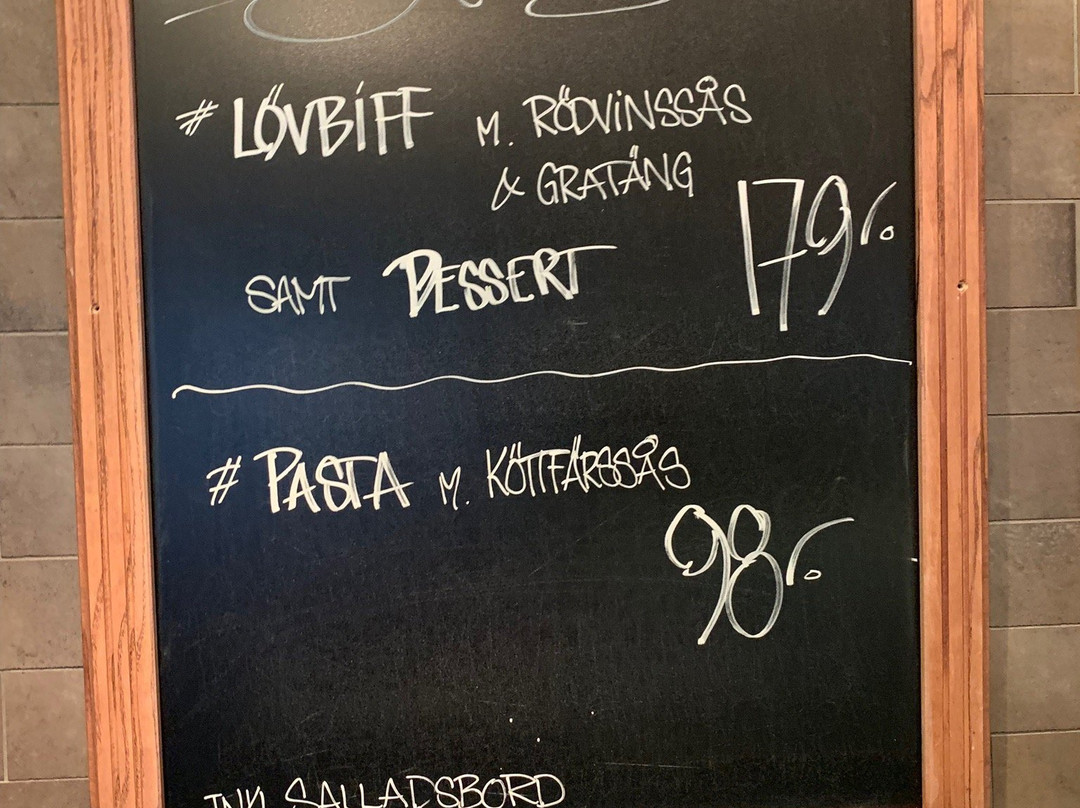 # LÖVBIFF M. RÖDVINSSÅS
& GRATÄNG
SAMT DESSERT 179:-
# PASTA M. KÖTTFÄRSSÅS
98:-
INKL SALLADSBORD